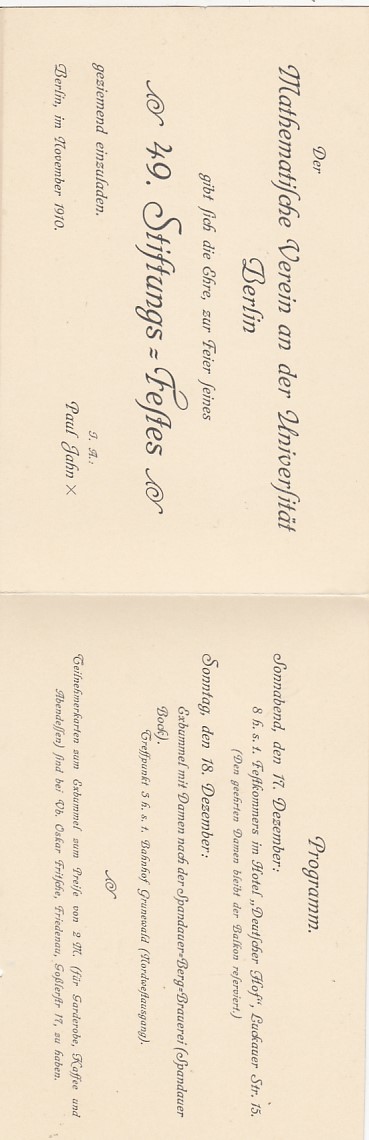 Der
Mathematiſche Verein an der Univerſität
Berlin
gibt ſich die Ehre, zur Feier ſeines
49. Stiftungs=Feſtes
geziemend einzuladen.
Berlin, im November 1910.
I. A.:
Paul Jahn ×
Programm.
Sonnabend, den 17. Dezember:
8 h. s. t. Feſtkommers im Hotel „Deutſcher Hof“, Luckauer Str. 15.
(Den geehrten Damen bleibt der Balkon reſerviert.)
Sonntag, den 18. Dezember:
Exbummel mit Damen nach der Spandauer=Berg=Brauerei (Spandauer
Bock).
Treffpunkt 3 h. s. t. Bahnhof Grunewald (Nordweſtausgang).
Teilnehmerkarten zum Exbummel zum Preiſe von 2 M. (für Garderobe, Kaffee und
Abendeſſen) ſind bei Vb. Oskar Fritſche, Friedenau, Goßlerſtr 17, zu haben.